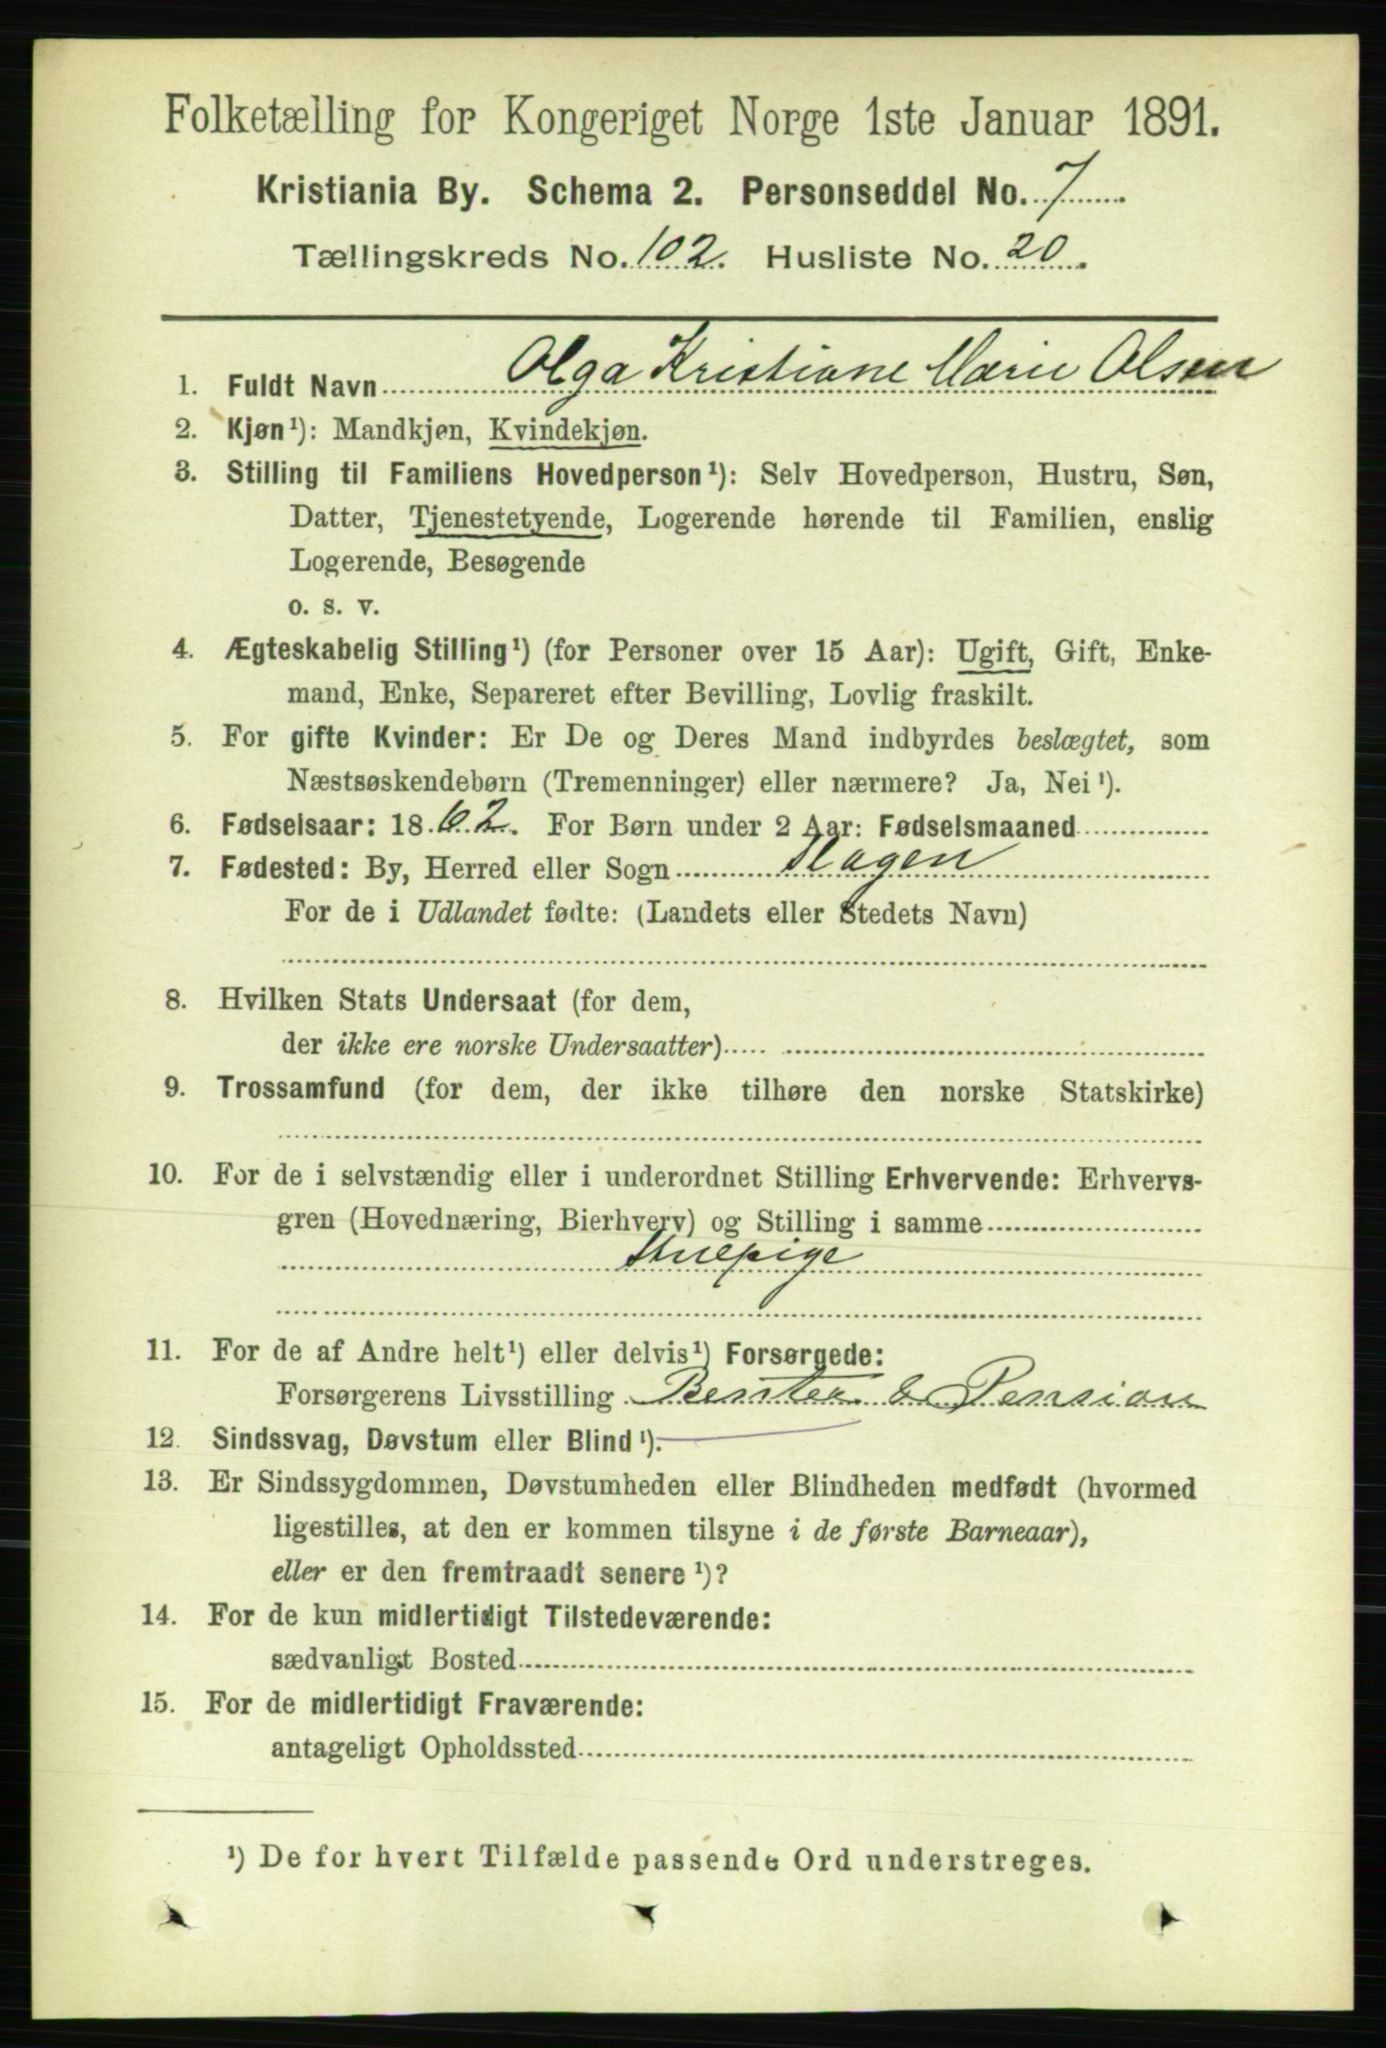 Folketælling for Kongeriget Norge 1ste Januar 1891.
Kristiania By. Schema 2. Personseddel No. 7
Tællingskreds No. 102. Husliste No. 20.
1. Fuldt Navn Olga Kristiane Marie Olsen
2. Kjøn¹): Mandkjøn, Kvindekjøn.
3. Stilling til Familiens Hovedperson¹): Selv Hovedperson, Hustru, Søn,
Datter, Tjenestetyende, Logerende hørende til Familien, enslig
Logerende, Besøgende
o. s. v.
4. Ægteskabelig Stilling¹) (for Personer over 15 Aar): Ugift, Gift, Enke-
mand, Enke, Separeret efter Bevilling, Lovlig fraskilt.
5. For gifte Kvinder: Er De og Deres Mand indbyrdes beslægtet, som
Næstsøskendebørn (Tremenninger) eller nærmere? Ja, Nei¹).
6. Fødselsaar: 1862. For Børn under 2 Aar: Fødselsmaaned
7. Fødested: By, Herred eller Sogn Slagen
For de i Udlandet fødte: (Landets eller Stedets Navn)
8. Hvilken Stats Undersaat (for dem,
der ikke ere norske Undersaatter)
9. Trossamfund (for dem, der ikke tilhøre den norske Statskirke)
10. For de i selvstændig eller i underordnet Stilling Erhvervende: Erhvervs-
gren (Hovednæring, Bierhverv) og Stilling i samme
Stuepige
11. For de af Andre helt¹) eller delvis¹) Forsørgede:
Forsørgerens Livsstilling Pension
12. Sindssvag, Døvstum eller Blind¹).
13. Er Sindssygdommen, Døvstumheden eller Blindheden medfødt (hvormed
ligestilles, at den er kommen tilsyne i de første Barneaar),
eller er den fremtraadt senere¹)?
14. For de kun midlertidigt Tilstedeværende:
sædvanligt Bosted
15. For de midlertidigt Fraværende:
antageligt Opholdssted
¹) De for hvert Tilfælde passende Ord understreges.